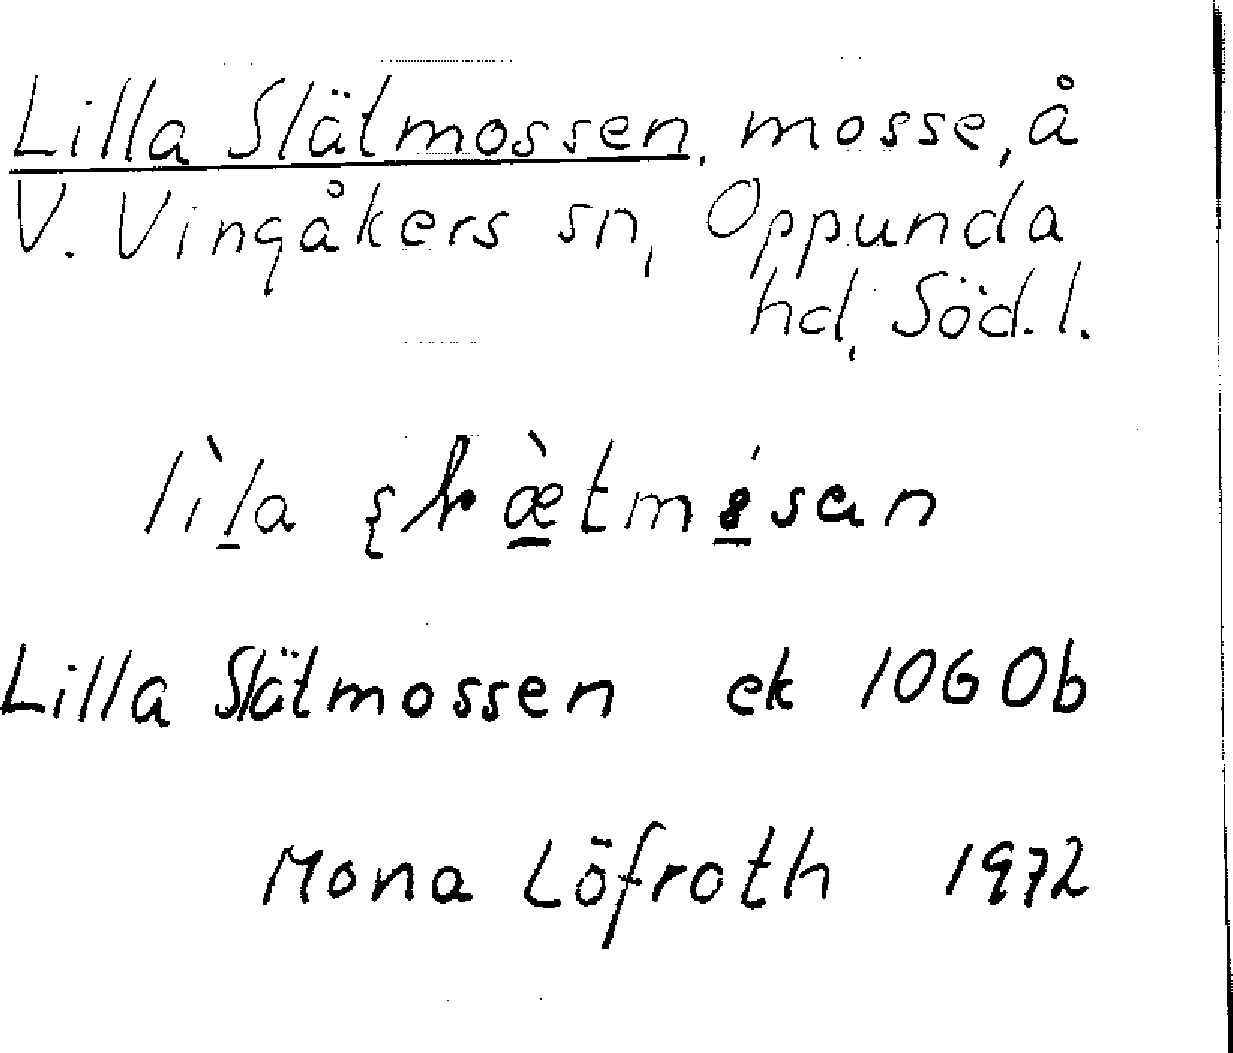 Lilla Slätmossen, mosse, å
V. Vingåkers sn, Oppunda
hd, Söd. l.
Lilla Slätmossen ek 10G 0b
Mona Löfroth 1972